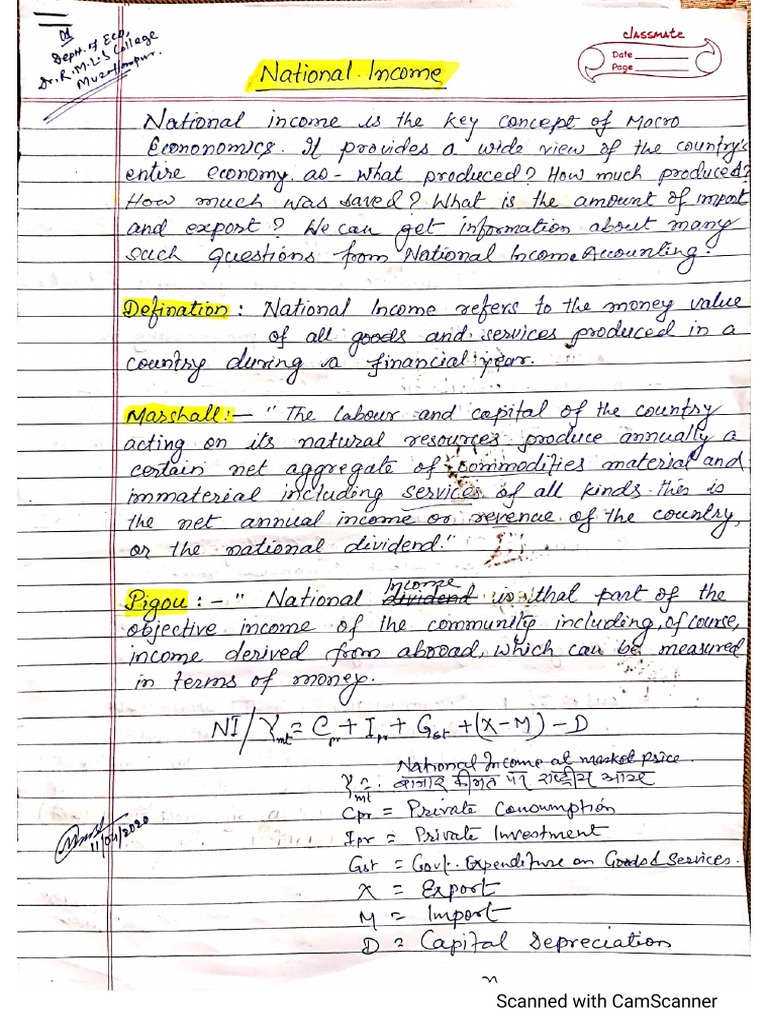 Deptt. of Eco,
Dr. R.M.L.S College
Muzaffarpur.
classmate
Date
Page
National Income
National income is the key concept of Macro
Econonomics. It provides a wide view of the country's
entire economy. as - What produced? How much produced?
How much was saved? What is the amount of import
and export? We can get information about many
such questions from National Income Accounting.
Defination : National Income refers to the money value
of all goods and services produced in a
country during a financial year.
Marshall:— "The labour and capital of the country
acting on its natural resources produce annually a
certain net aggregate of commodities material and
immaterial including services of all kinds this is
the net annual income or revenue of the country,
or the national dividend."
Income
Pigou : - " National dividend is that part of the
objective income of the community including, of course,
income derived from abroad, which can be measured
in terms of money.
NI/Ymt = Cpr + Ipr + Gst + (X-M) - D
National Income at market price.
Ymt = बाजार कीमत पर राष्ट्रीय आय
Cpr = Private Consumption
Ipr = Private Investment
11/04/2020
Gst = Govt. Expenditure on Goods & Services.
X = Export
M = Import
D = Capital Depreciation
Scanned with CamScanner